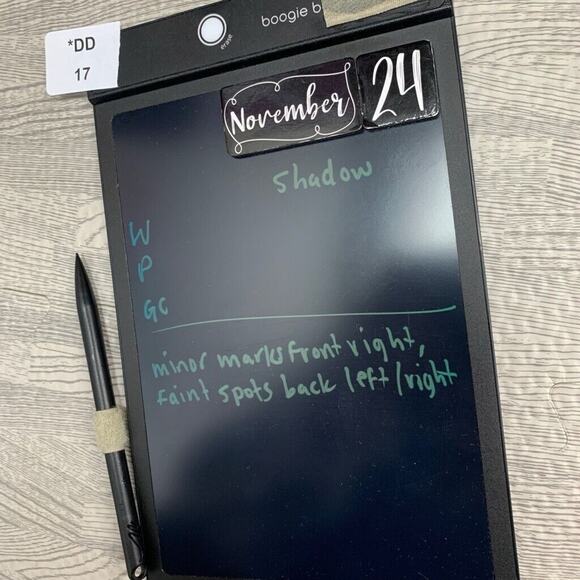 *DD
17
boogie b
erase
November 24
Shadow
W
P
GC
minor marks front right,
faint spots back left/right